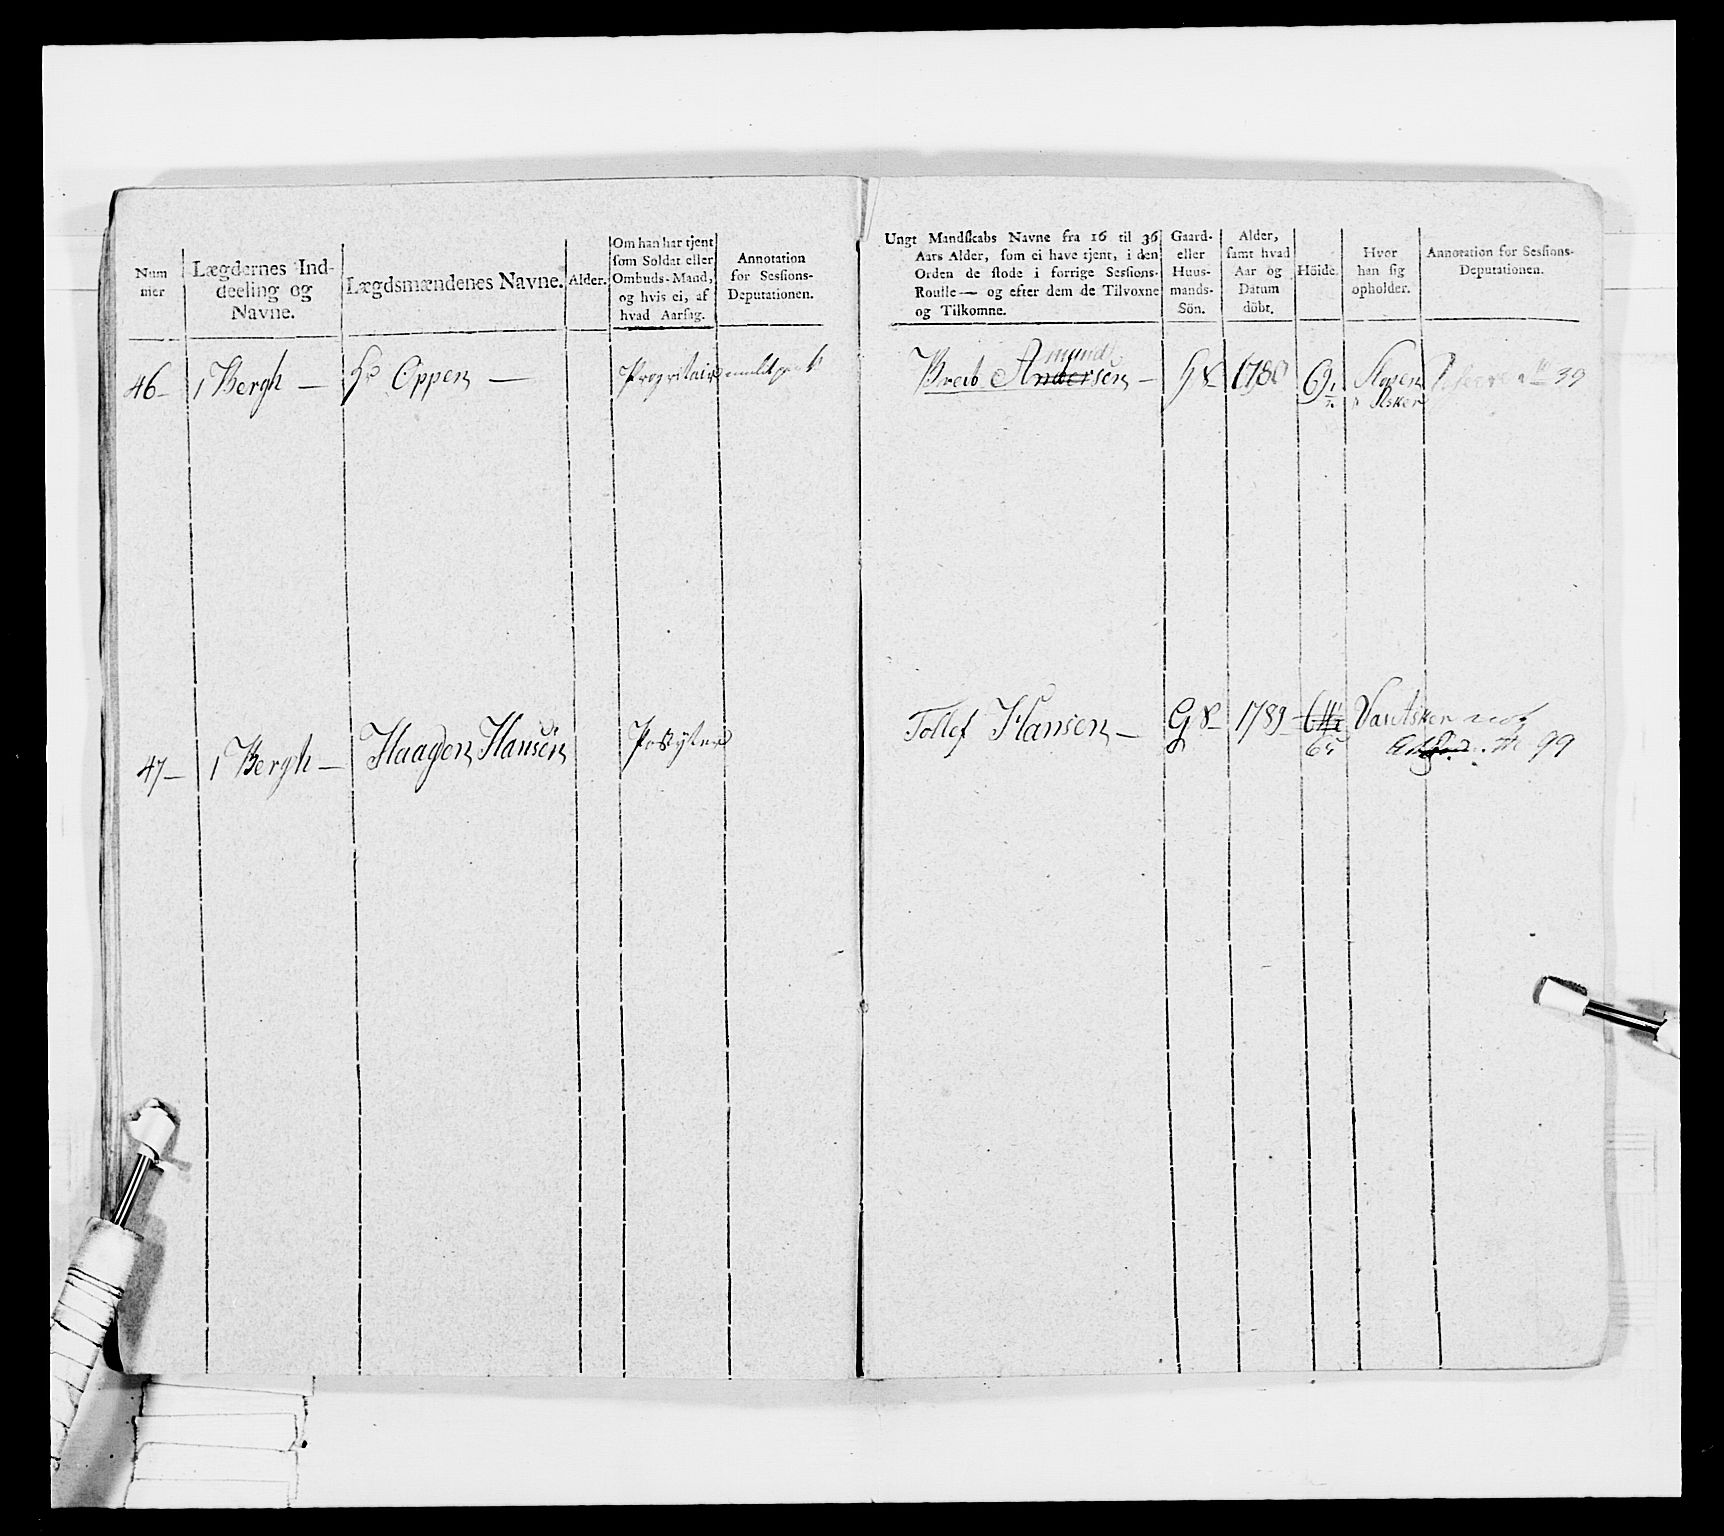 Num
mer
Lægdernes Ind-
deeling og
Navne.
Lægdsmændenes Navne.
Alder.
Om han har tjent
som Soldat eller
Ombuds-Mand,
og hvis ei, af
hvad Aarsag.
Annotation
for Sessions-
Deputationen.
Ungt Mandskabs Navne fra 16 til 36
Aars Alder, som ei have tjent, i den
Orden de stode i forrige Sessions-
Roulle — og efter dem de Tilvoxne
og Tilkomne.
Gaard-
eller
Huus-
mands-
Sön.
Alder,
samt hvad
Aar og
Datum
döbt.
Höide.
Hvor
han sig
opholder.
Annotation for Sessions-
Deputationen.
46 – 1 Bergh — Hr Oppen — Propritair
Amundsen
Andersen — G S 1780 Asker 39
47 – 1 Bergh — Haagen Hansen
Tollef Hansen — G S – 1789 –
65 99